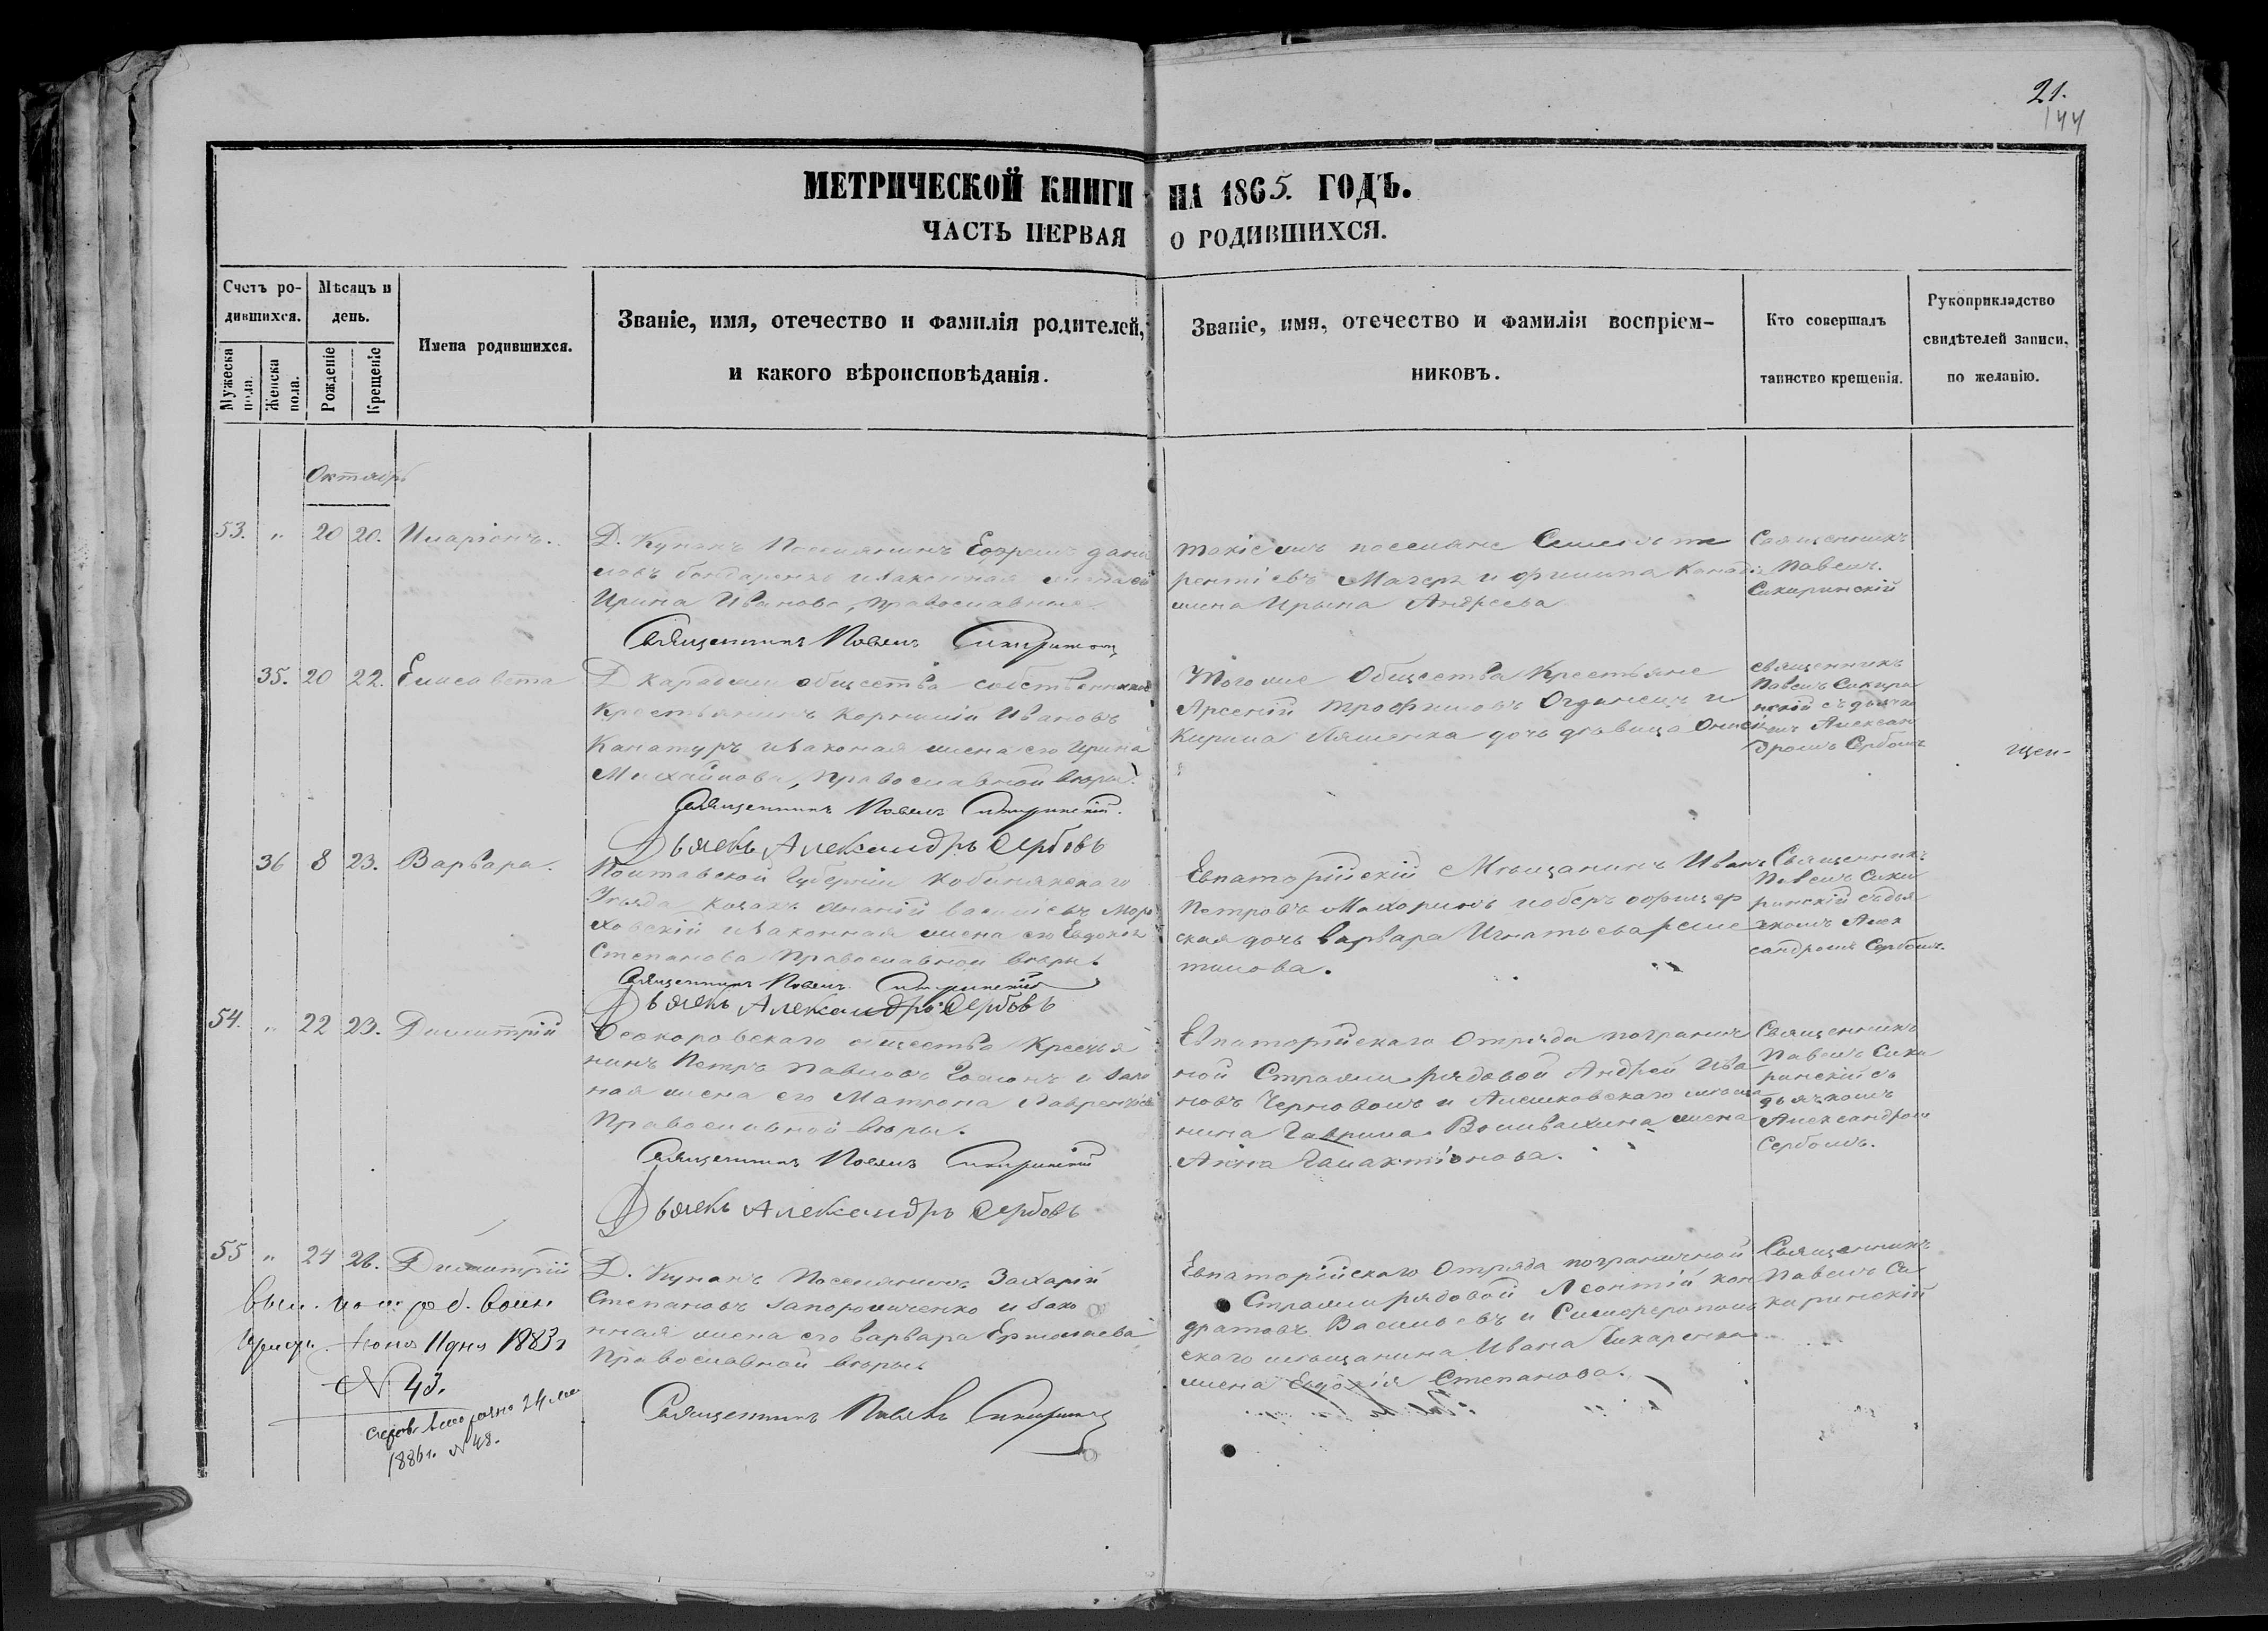 21.
144
МЕТРИЧЕСКОЙ КНИГИ НА 1865. ГОДЪ.
ЧАСТЬ ПЕРВАЯ О РОДИВШИХСЯ.
Счетъ ро-
дившихся.
Мужеска
пола.
Женска
пола.
Мѣсяцъ и
день.
Рожденіе
Крещеніе
Имена родившихся.
Званіе, имя, отечество и фамилія родителей,
и какого вѣроисповѣданія.
Званіе, имя, отечество и фамилія воспріем-
никовъ.
Кто совершалъ
таинство крещенія.
Рукоприкладство
свидѣтелей записи,
по желанію.
Октябрь
53. " 20 20. Иларіонъ.
Д. Кунанъ Поселянинъ Ефремъ Дани
ловъ Бондаренко и законная жена его
Ирина Иванова, православные
Священникъ Павелъ
поселяне
рентіевъ Магеръ и Филипа
жена Ирына Андреева
Священникъ
Павелъ
Сикиринскій
35. 20 22. Елисавета
Д общества собственникъ
Крестьянинъ Корнилій Ивановъ
Канатуръ и законая жена его Ирина
Михайлова, Православной вѣры.
Священникъ Павелъ Сикиринскій.
Дьячекъ Александръ Сербовъ
Тогоже Общества Крестьяне
Арсеній Трофимовъ и
Кирила Ляшенка дочь дѣвица
священникъ
Павелъ Сикири
нскій съ дьячко
мъ Алексан
дромъ Сербовъ
щен-
36 8 23. Варвара.
Полтавской Губерніи Кобилякскаго
Уѣзда Козакъ Ананій Василіевъ
ховскій и законная жена его Евдокія
Степанова Православной вѣры.
Священникъ Павелъ Сикиринскій
Дьячекъ Александръ Сербовъ
Евпаторійскій Мѣщанинъ Иванъ
Петровъ Махоринъ и оберъ офицер
ская дочь Варвара Игнатьева
тилова.
Священникъ
Павелъ Сики
ринскій съ дья
чкомъ Алек
сандромъ Сербовъ.
54. " 22 23. Димитрій
Осокоровскаго общества Крестья
нинъ Петръ Павловъ и зако
ная жена его Матрона Лаврентіева
Православной вѣры.
Священникъ Павелъ Сикиринскій
Дьячекъ Александръ Сербовъ
Евпаторійскаго Отряда погранич
ной Стражи рядовой Андрей Ива
новъ Черновомъ и Алешковскаго мѣща
нина Гаврила жена
Анна Галактіонова.
Священникъ
Павелъ Сики
ринскій съ
дьячкомъ
Александром
Сербомъ.
55 " 24 26. Димитрій
Д. Кунанъ Поселянинъ Захарій
Степановъ Запорожченко и зако
нная жена его Варвара Ермолаева
Православной вѣры.
Священникъ Павелъ
Евпаторійскаго Отряда пограничной
Стражи рядовой Леонтій Кон
дратовъ Васильевъ и Симферополь
скаго мѣщанина Ивана
жена Евдокія Степанова.
Священникъ
Павелъ Си
киринскій
11 дня 1883г
№ 43.
1886г. № 48.